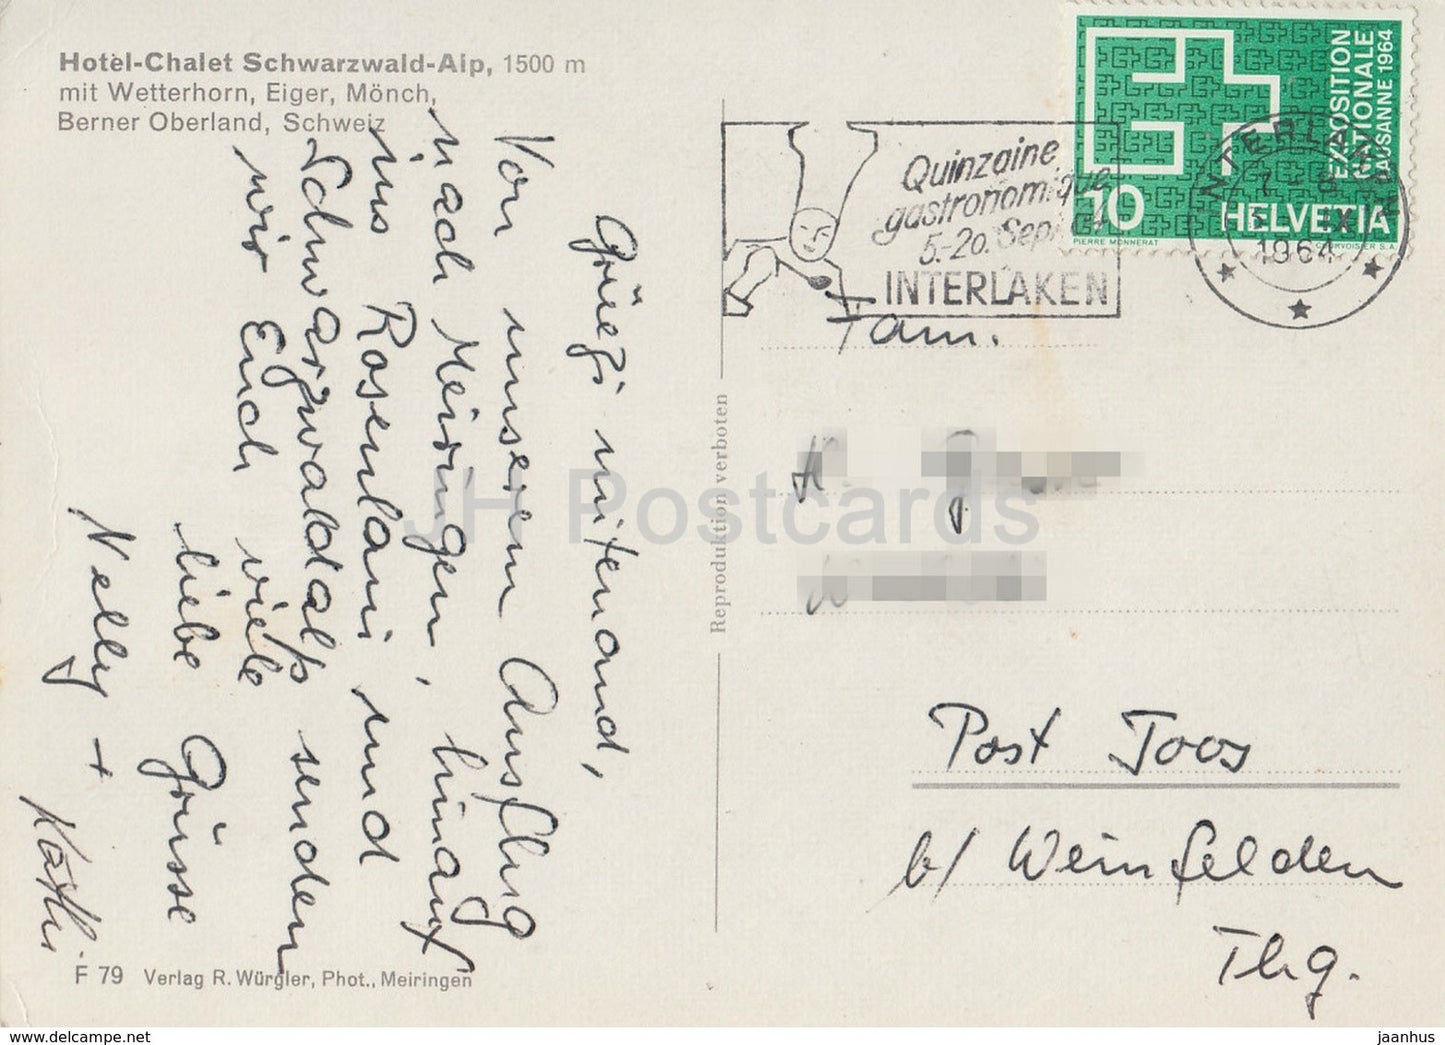 Hotel-Chalet Schwarzwald-Alp, 1500 m
mit Wetterhorn, Eiger, Mönch,
Berner Oberland, Schweiz
Grüezi mitenand,
Von unserem Ausflug
nach Meiringen, hinauf
ins Rosenlaui und
Schwarzwaldalp senden
wir Euch viele
liebe Grüsse
Nelly +
Käthi
F 79 Verlag R. Würgler, Phot., Meiringen
Reproduktion verboten
Quinzaine
gastronomique
5.-20. Sept. 64
INTERLAKEN
EXPOSITION
NATIONALE
LAUSANNE 1964
10 HELVETIA
PIERRE MONNERAT COURVOISIER S.A.
INTERLAKEN
IX
1964
Fam.
Post Toos
b/ Weinfelden
Thg.
JH Postcards
www.delcampe.net
jaanhus